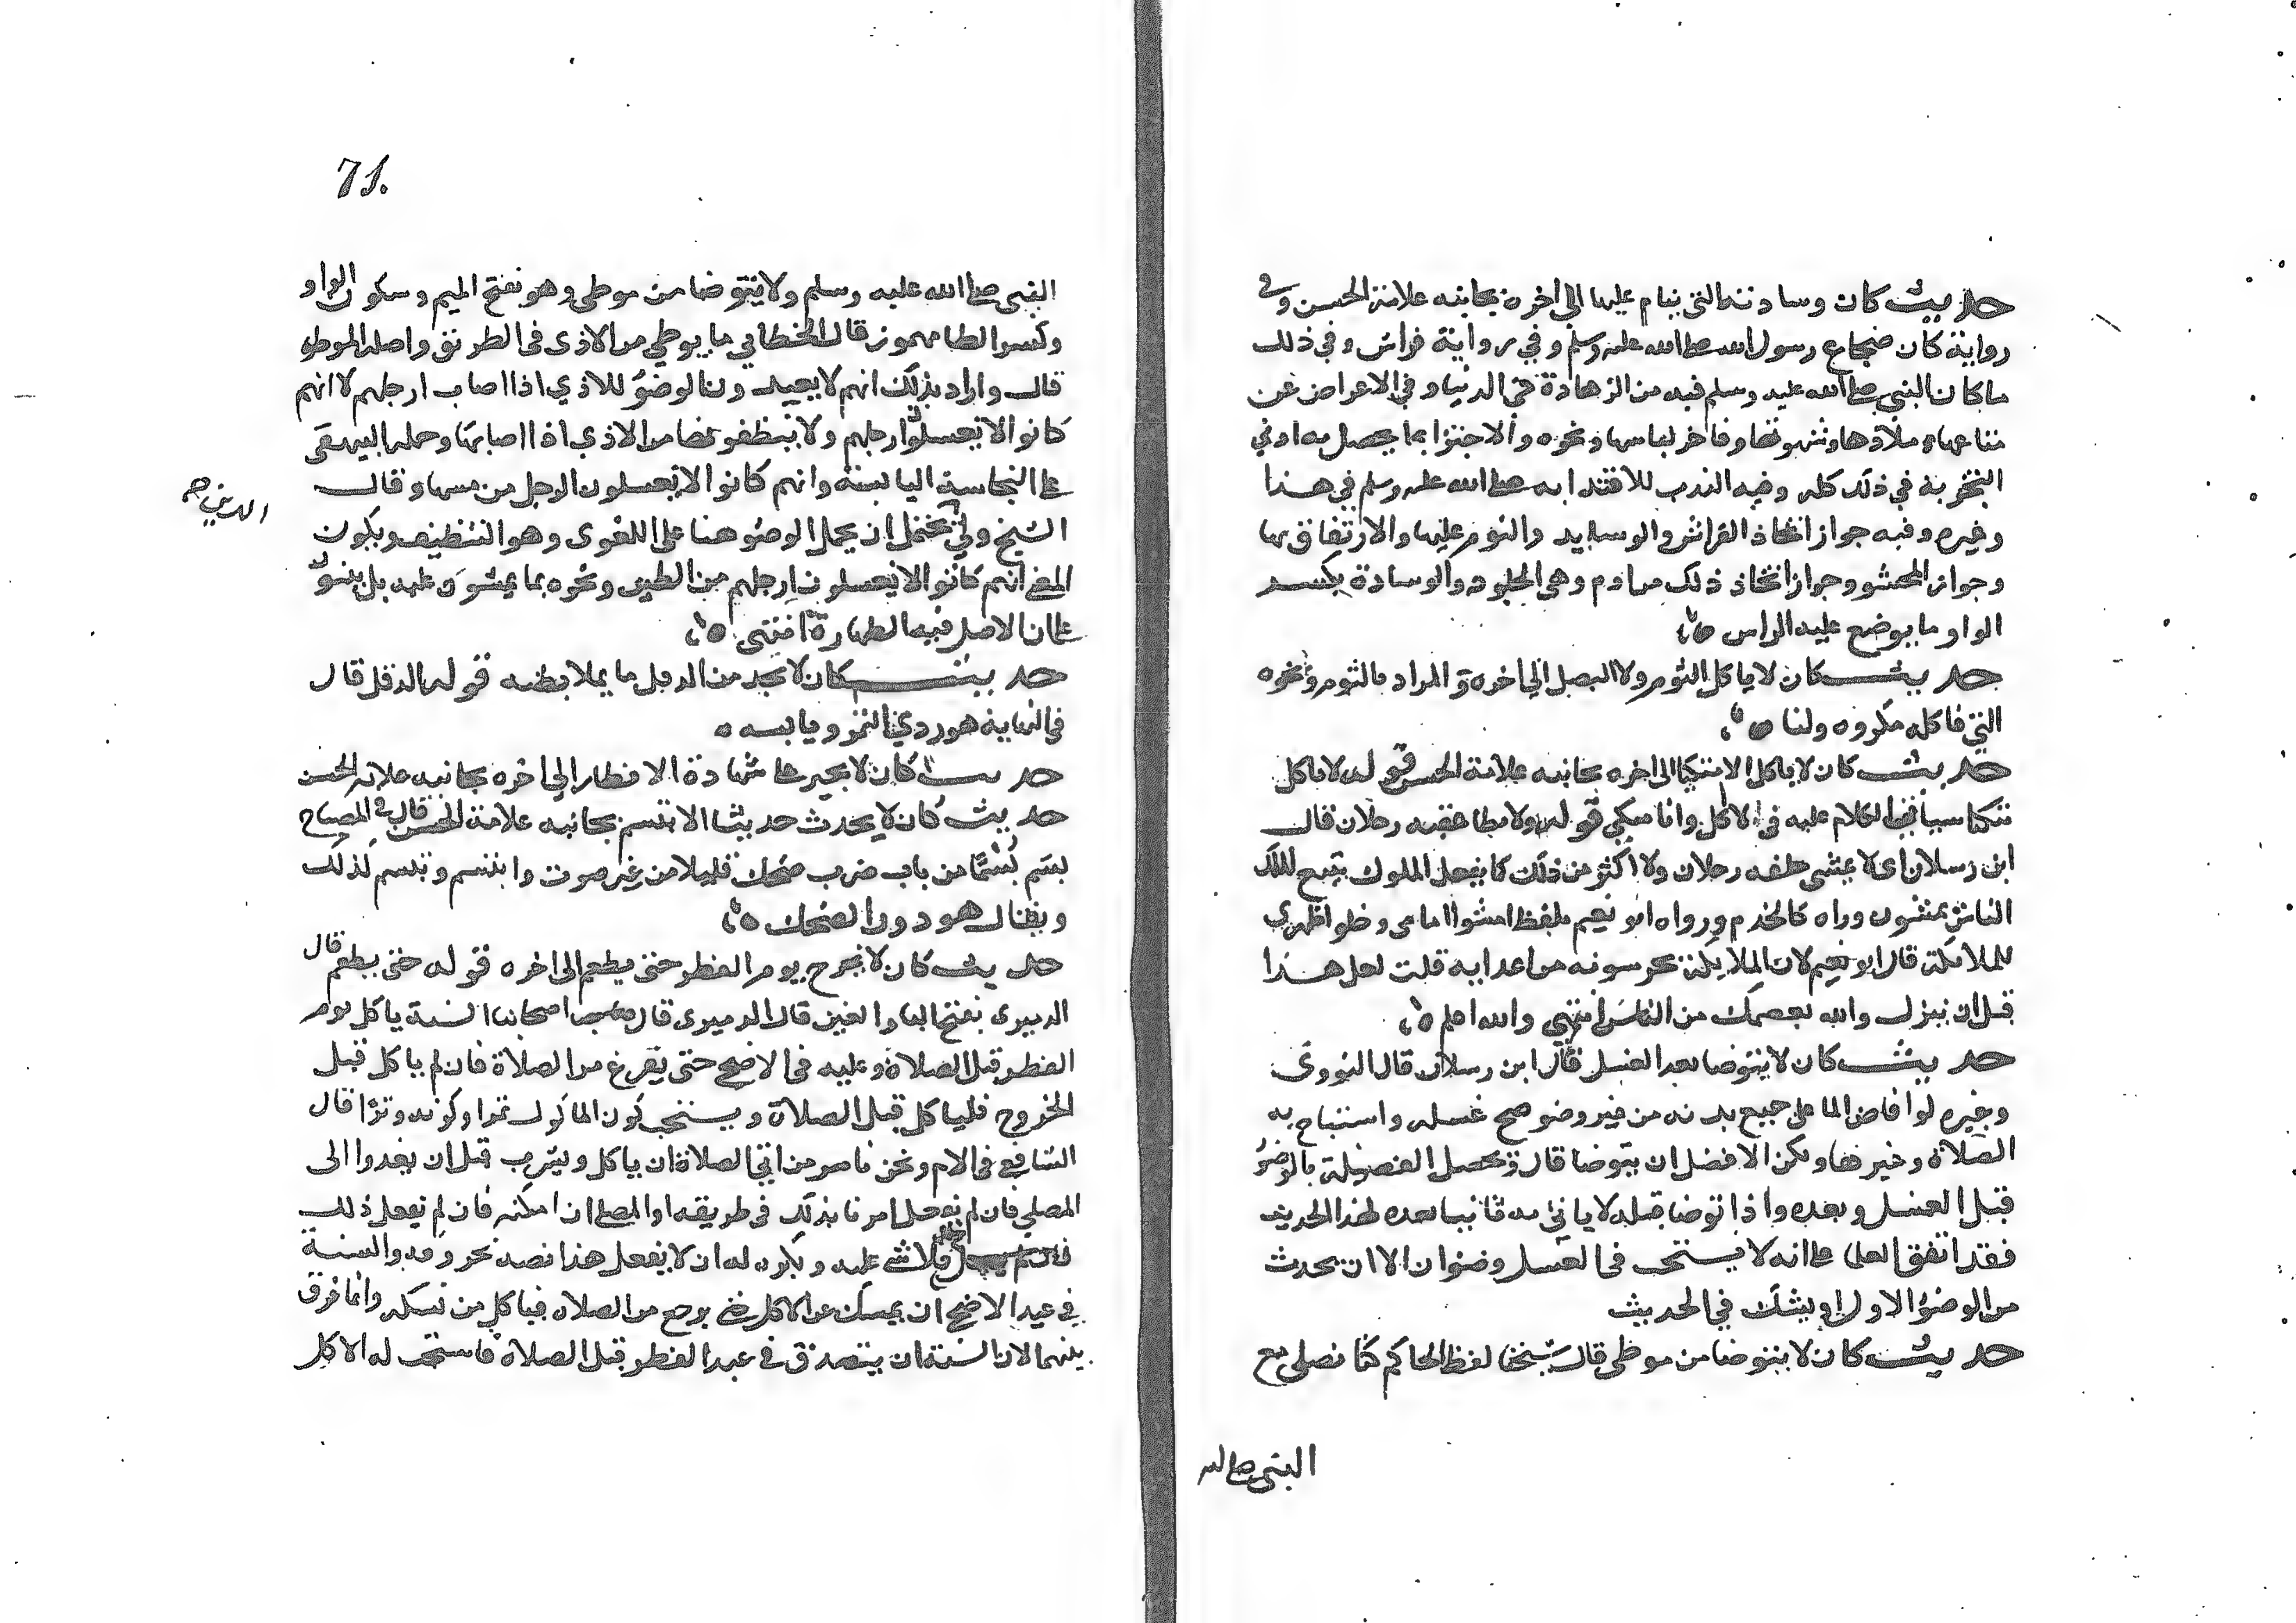 حديث كان وسادته التي ينام عليها الى اخره بجانبه علامة الحسن وفى
رواية كان ضجاع رسول الله صلى الله عليه وسلم وفي رواية فراش وفي ذلك
ما كان النبي صلى الله عليه وسلم فيه من الزهادة في الدنيا وفي الاعراض عن
متاعها وملاذها وشهوتها وفاخر لباسها ونحوه والاجتزا بما يحصل به ادني
في ذلك كله وفيه الندب للاقتدا به صلى الله عليه وسلم في هذا
وغيره وفيه جواز اتخاذ الفراش والوسايد والنوم عليها والارتفاق بها
وجواز المحشو وجواز اتخاذ ذلك من ادم وهي الجلود والوسادة بكسر
الواو ما يوضع عليه الراس
حديث كان لا ياكل الثوم ولا البصل الي اخره والمراد بالثوم ونحوه
الني فاكله مكروه ولنا
حديث كان لا ياكل الا متكيا الى اخره بجانبه علامة الحسن قوله لا ياكل
متكيا سيا الكلام عليه في الاكل وانا متكي قوله ولا يطا عقبه رجلان قال
ابن رسلان اى لا يمشى خلفه رجلان ولا اكثر من ذلك كما يفعل الملوك يتبع الملك
الناس يمشون وراه كالخدم ورواه ابو نعيم بلفظ امشوا امامى وخلوا ظهري
للملائكة قال ابو نعيم لان الملايكة يحرسونه من اعدايه قلت لعل هذا
قبل ان ينزل والله يعصمك من الناس انتهي والله اعلم
حديث كان لا يتوضا بعد الغسل قال ابن رسلان قال النووى
وغيره لو افاض الما على جميع بدنه من غير وضو صح غسله واستباح به
الصلاة وغيرها ولكن الافضل ان يتوضا قال وتحصل الفضيلة بالوضو
قبل الغسل وبعده واذا توضا قبله لا ياتي به ثانيا بعده لهذا الحديث
فقد اتفق العلما على انه لا يستحب فى الغسل وضوان الا ان يحدث
من الوضو الاول او يشك في الحديث
حديث كان لا يتوضا من موطى قال شيخنا لفظ الحاكم كنا نصلى مع
النبي صلى الله
71.
النبى صلى الله عليه وسلم ولا يتوضا من موطى وهو بفتح الميم وسكون الواو
وكسر الطا مهموز قال الخطابي ما يوطي من الاذى فى الطريق واصله الموطو
قال واراد بذلك انهم لا يعيدون الوضو للاذي اذا اصاب ارجلهم لا انهم
كانوا لا يغسلون ارجلهم ولا ينظفونها من الاذي اذا اصابها وحمله البيهقى
على النجاسة اليابسة وانهم كانوا لا يغسلون الرجل من مسها وقال
الشيخ ولي يحتمل ان يحمل الوضو هنا على اللغوى وهو التنظيف ويكون
الدين
المعني انهم كانوا لا يغسلون ارجلهم من الطين ونحوه مما يمشون عليه بل
على ان الاصل فيه الطهارة انتهى
حديث كان لا يجد من الدقل ما يملا بطنه قوله الدقل قال
في النهاية هو ردي التمر ويابسه
حديث كان لا يجيز على شهادة الافطار الي اخره بجانبه علامة الحسن
حديث كان لا يحدث حديثا الا تبسم بجانبه علامة الحسن قال في المصباح
بسم بسما من باب ضرب ضحك قليلا من غير صوت وابتسم وتبسم كذلك
ويقال هو دون الضحك
حديث كان لا يخرج يوم الفطر حتى يطعم الى اخره قوله حتى يطعم قال
الدميرى بفتح اليا والعين قال الدميرى قال اصحابنا السنة ياكل يوم
الفطر قبل الصلاة وعليه في الاضحى حتى يفرغ من الصلاة فان لم ياكل قبل
الخروج فلياكل قبل الصلاة ويستحب كون الماكول تمرا وكونه وترا قال
الشافعي في الام ونحن نامر من اتى الصلاة ان ياكل ويشرب قبل ان يغدوا الى
المصلي فان لم يفعل امرناه بذلك في طريقه او المصلى ان امكنه فان لم يفعل ذلك
فلا شي عليه ويكره له ان لا يفعل هذا نصه بحروفه والسنة
في عيد الاضحى ان يمسك عن الاكل حتى يرجع من الصلاه فياكل من نسكه وانما فرق
بينهما لان السنة ان يتصدق في عيد الفطر قبل الصلاة فاستحب له الاكل